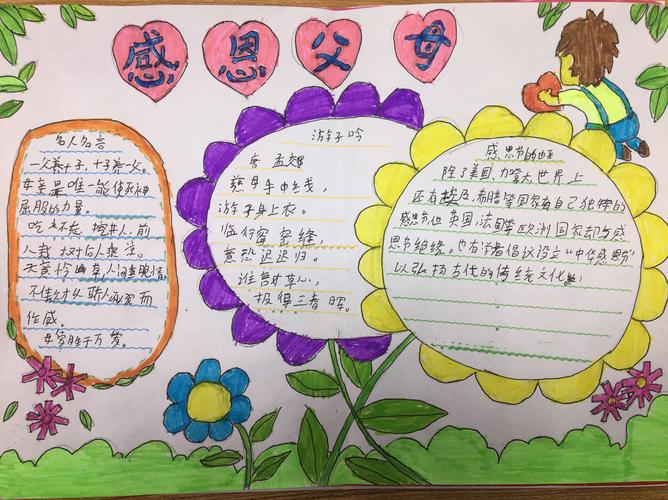 感恩父母
名人名言
一父养十子，十子养一父。
母亲是唯一能使死神
屈服的力量。
吃水不忘挖井人，前
人栽树后人乘
不
作感。
母爱胜于万爱。
游子吟
唐 孟郊
慈母手中线，
游子身上衣。
临行密密缝，
意恐迟迟归。
谁言寸草心，
报得三春晖。
感恩节的
除了美国，加拿大世界上
还有埃及，希腊等国家有自己独特的
感恩节但英国，法国等欧洲国家却与感
恩节绝缘。也有学者倡议设立“中华感恩节”
以弘扬古代的传统文化。